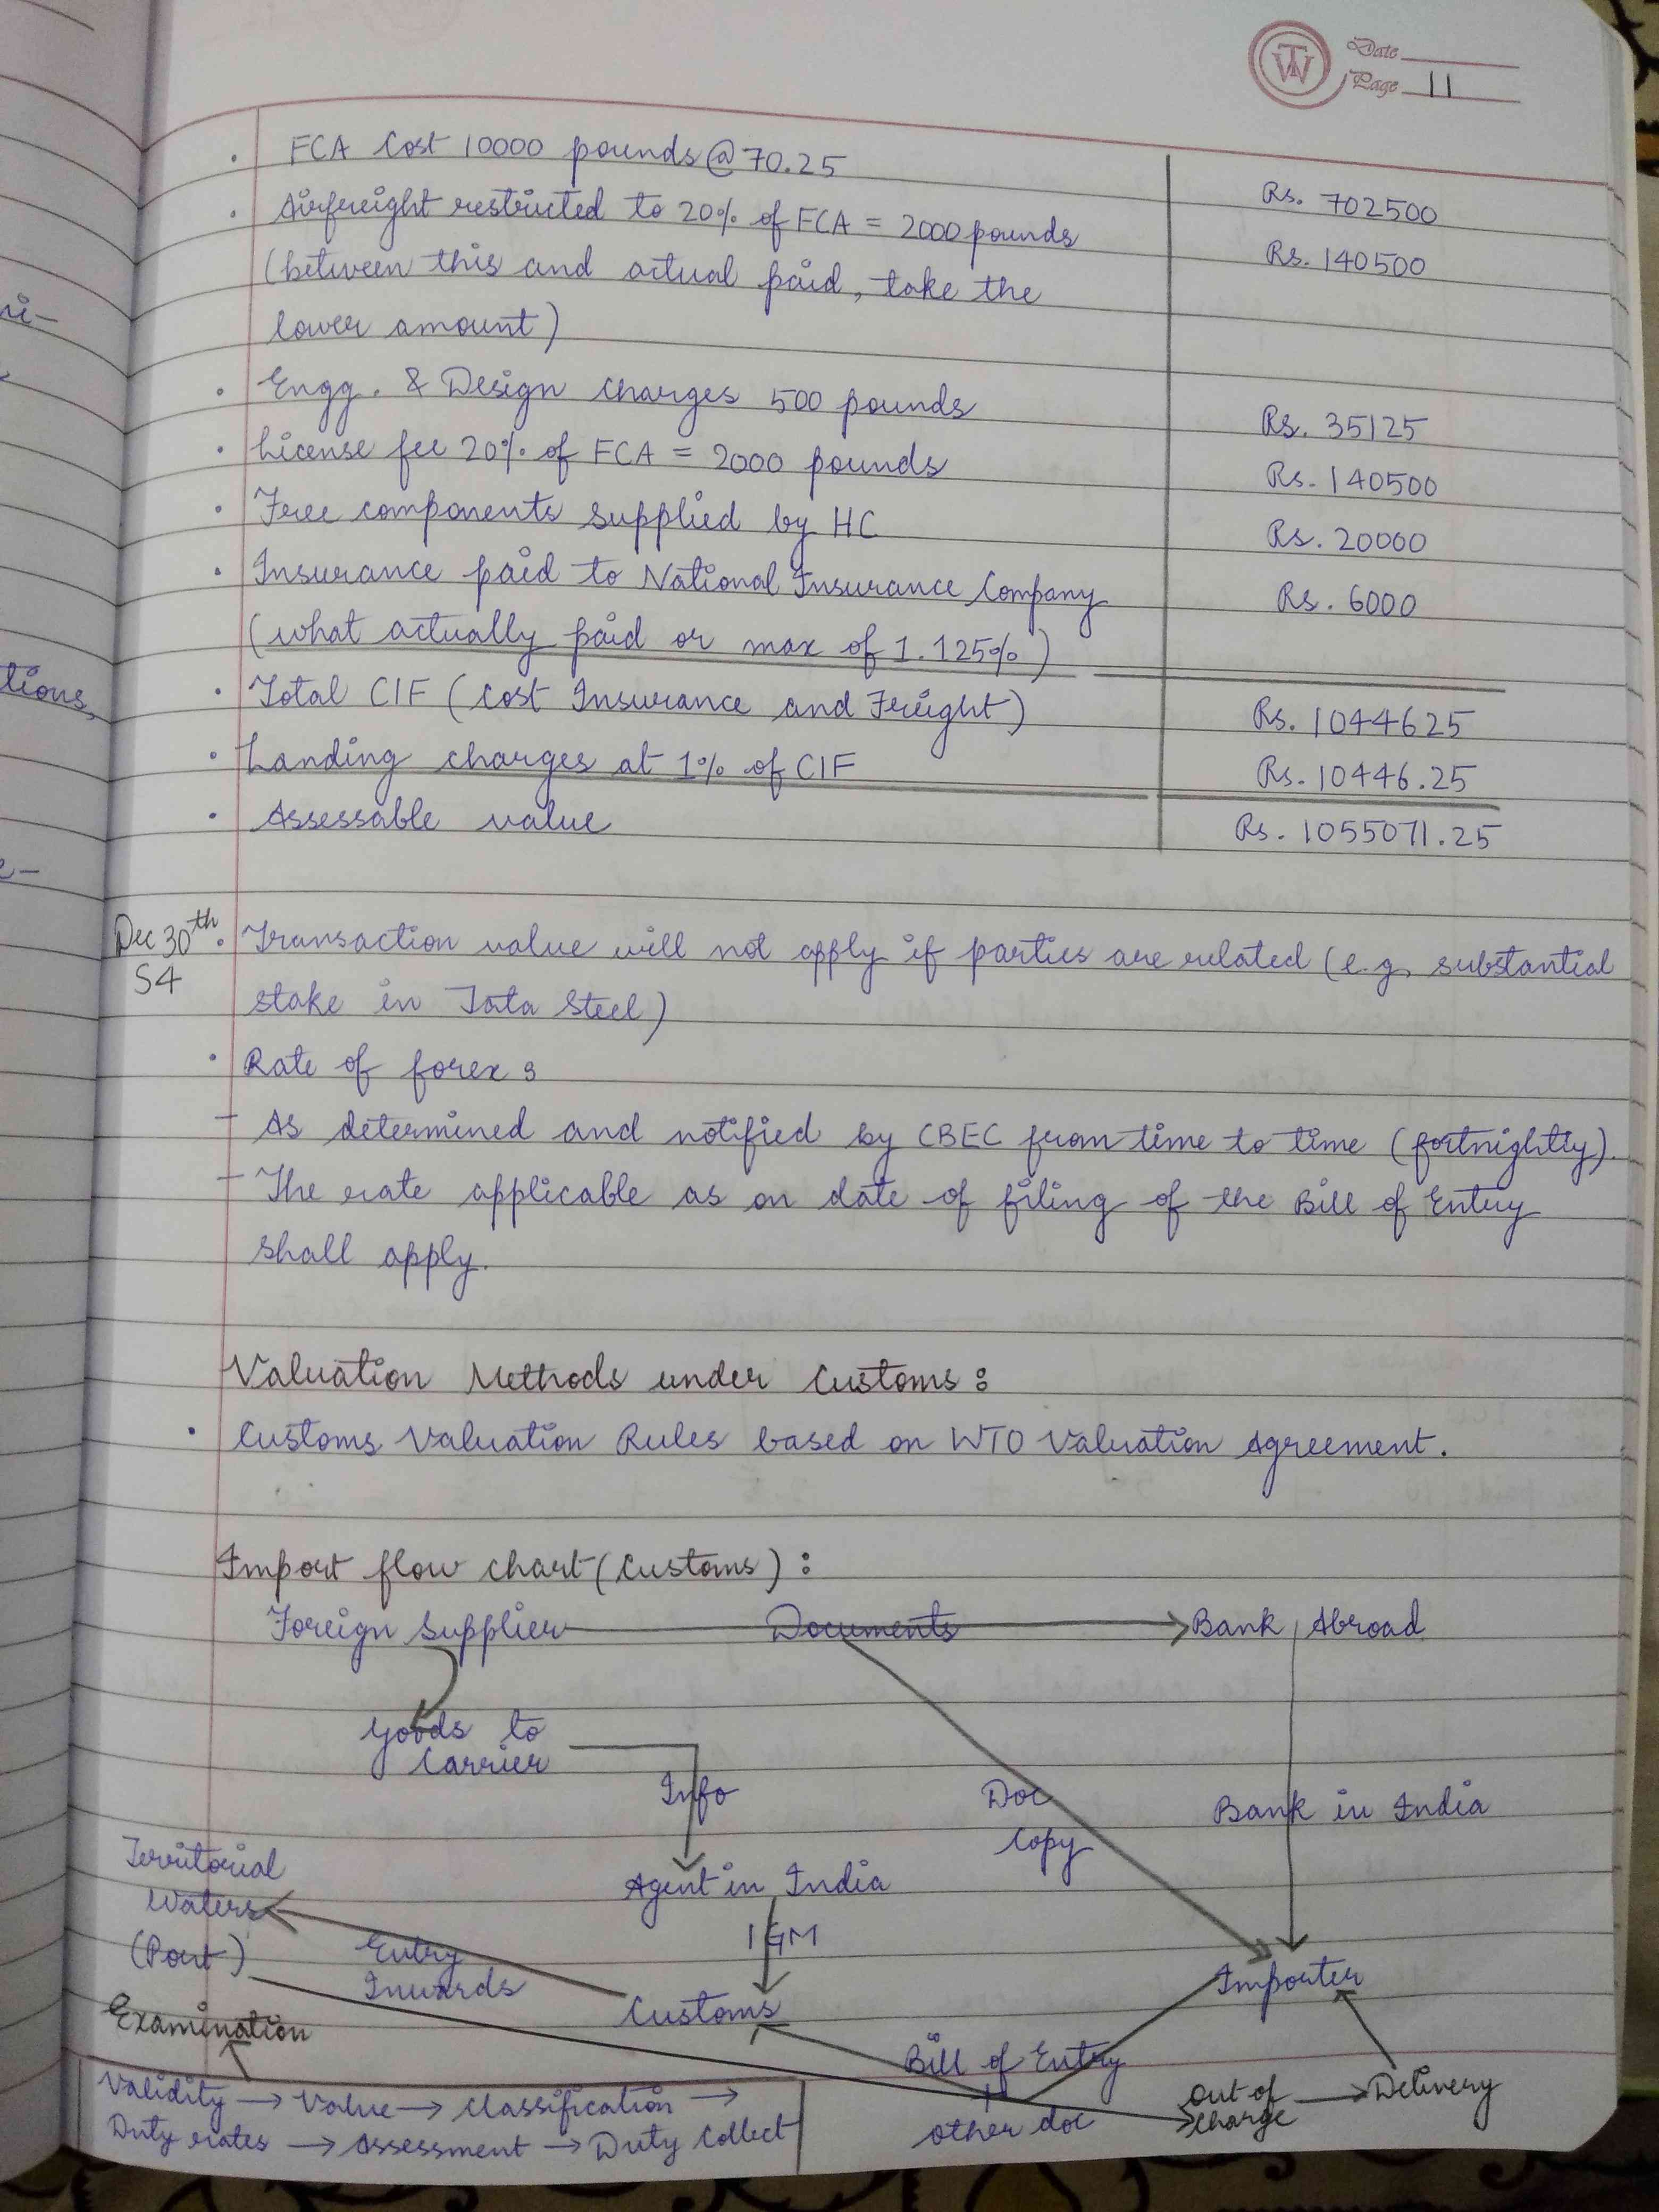 Date
Page 11
. FCA Cost 10000 pounds @ 70.25 Rs. 702500
. Airfreight restricted to 20% of FCA = 2000 pounds Rs. 140500
(between this and actual paid, take the
lower amount)
. Engg. & Design charges 500 pounds Rs. 35125
. License fee 20% of FCA = 2000 pounds Rs. 140500
. Free components supplied by HC Rs. 20000
. Insurance paid to National Insurance Company Rs. 6000
(what actually paid or max of 1.125%)
. Total CIF (Cost Insurance and Freight) Rs. 1044625
. Landing charges at 1% of CIF Rs. 10446.25
. Assessable value Rs. 1055071.25
Dec 30th . Transaction value will not apply if parties are related (e.g. substantial
S4 stake in Tata Steel)
. Rate of forex :
- As determined and notified by CBEC from time to time (fortnightly).
- The rate applicable as on date of filing of the Bill of Entry
shall apply.
Valuation Methods under Customs :
. Customs Valuation Rules based on WTO Valuation Agreement.
Import flow chart (Customs) :
Foreign Supplier Documents Bank Abroad
Goods to
Carrier
Info Doc Bank in India
Copy
Territorial
Waters
(Port)
Agent in India
IGM
Entry
Inwards
Customs Importer
Examination
Bill of Entry
+
other doc
Out of
charge
Delivery
Validity → Value → Classification →
Duty rates → Assessment → Duty Collect
tions,